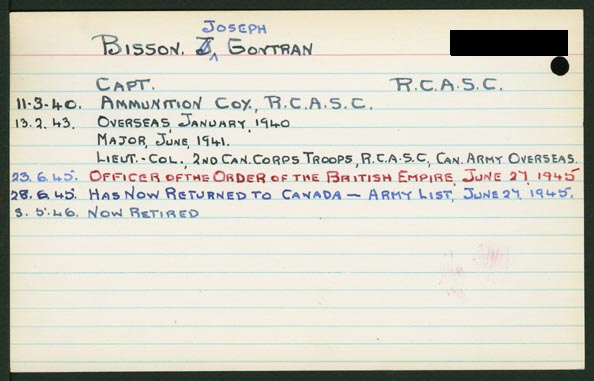 JOSEPH
BISSON, J. GONTRAN
CAPT. R.C.A.S.C.
11-3-40. AMMUNITION COY., R.C.A.S.C.
13.2.43. OVERSEAS, JANUARY, 1940
MAJOR, JUNE, 1941.
LIEUT.-COL., 2ND CAN. CORPS TROOPS, R.C.A.S.C, CAN. ARMY OVERSEAS.
23.6.45. OFFICER OF THE ORDER OF THE BRITISH EMPIRE, JUNE 27, 1945
28.6.45. HAS NOW RETURNED TO CANADA — ARMY LIST, JUNE 27, 1945.
3.5.46. NOW RETIRED